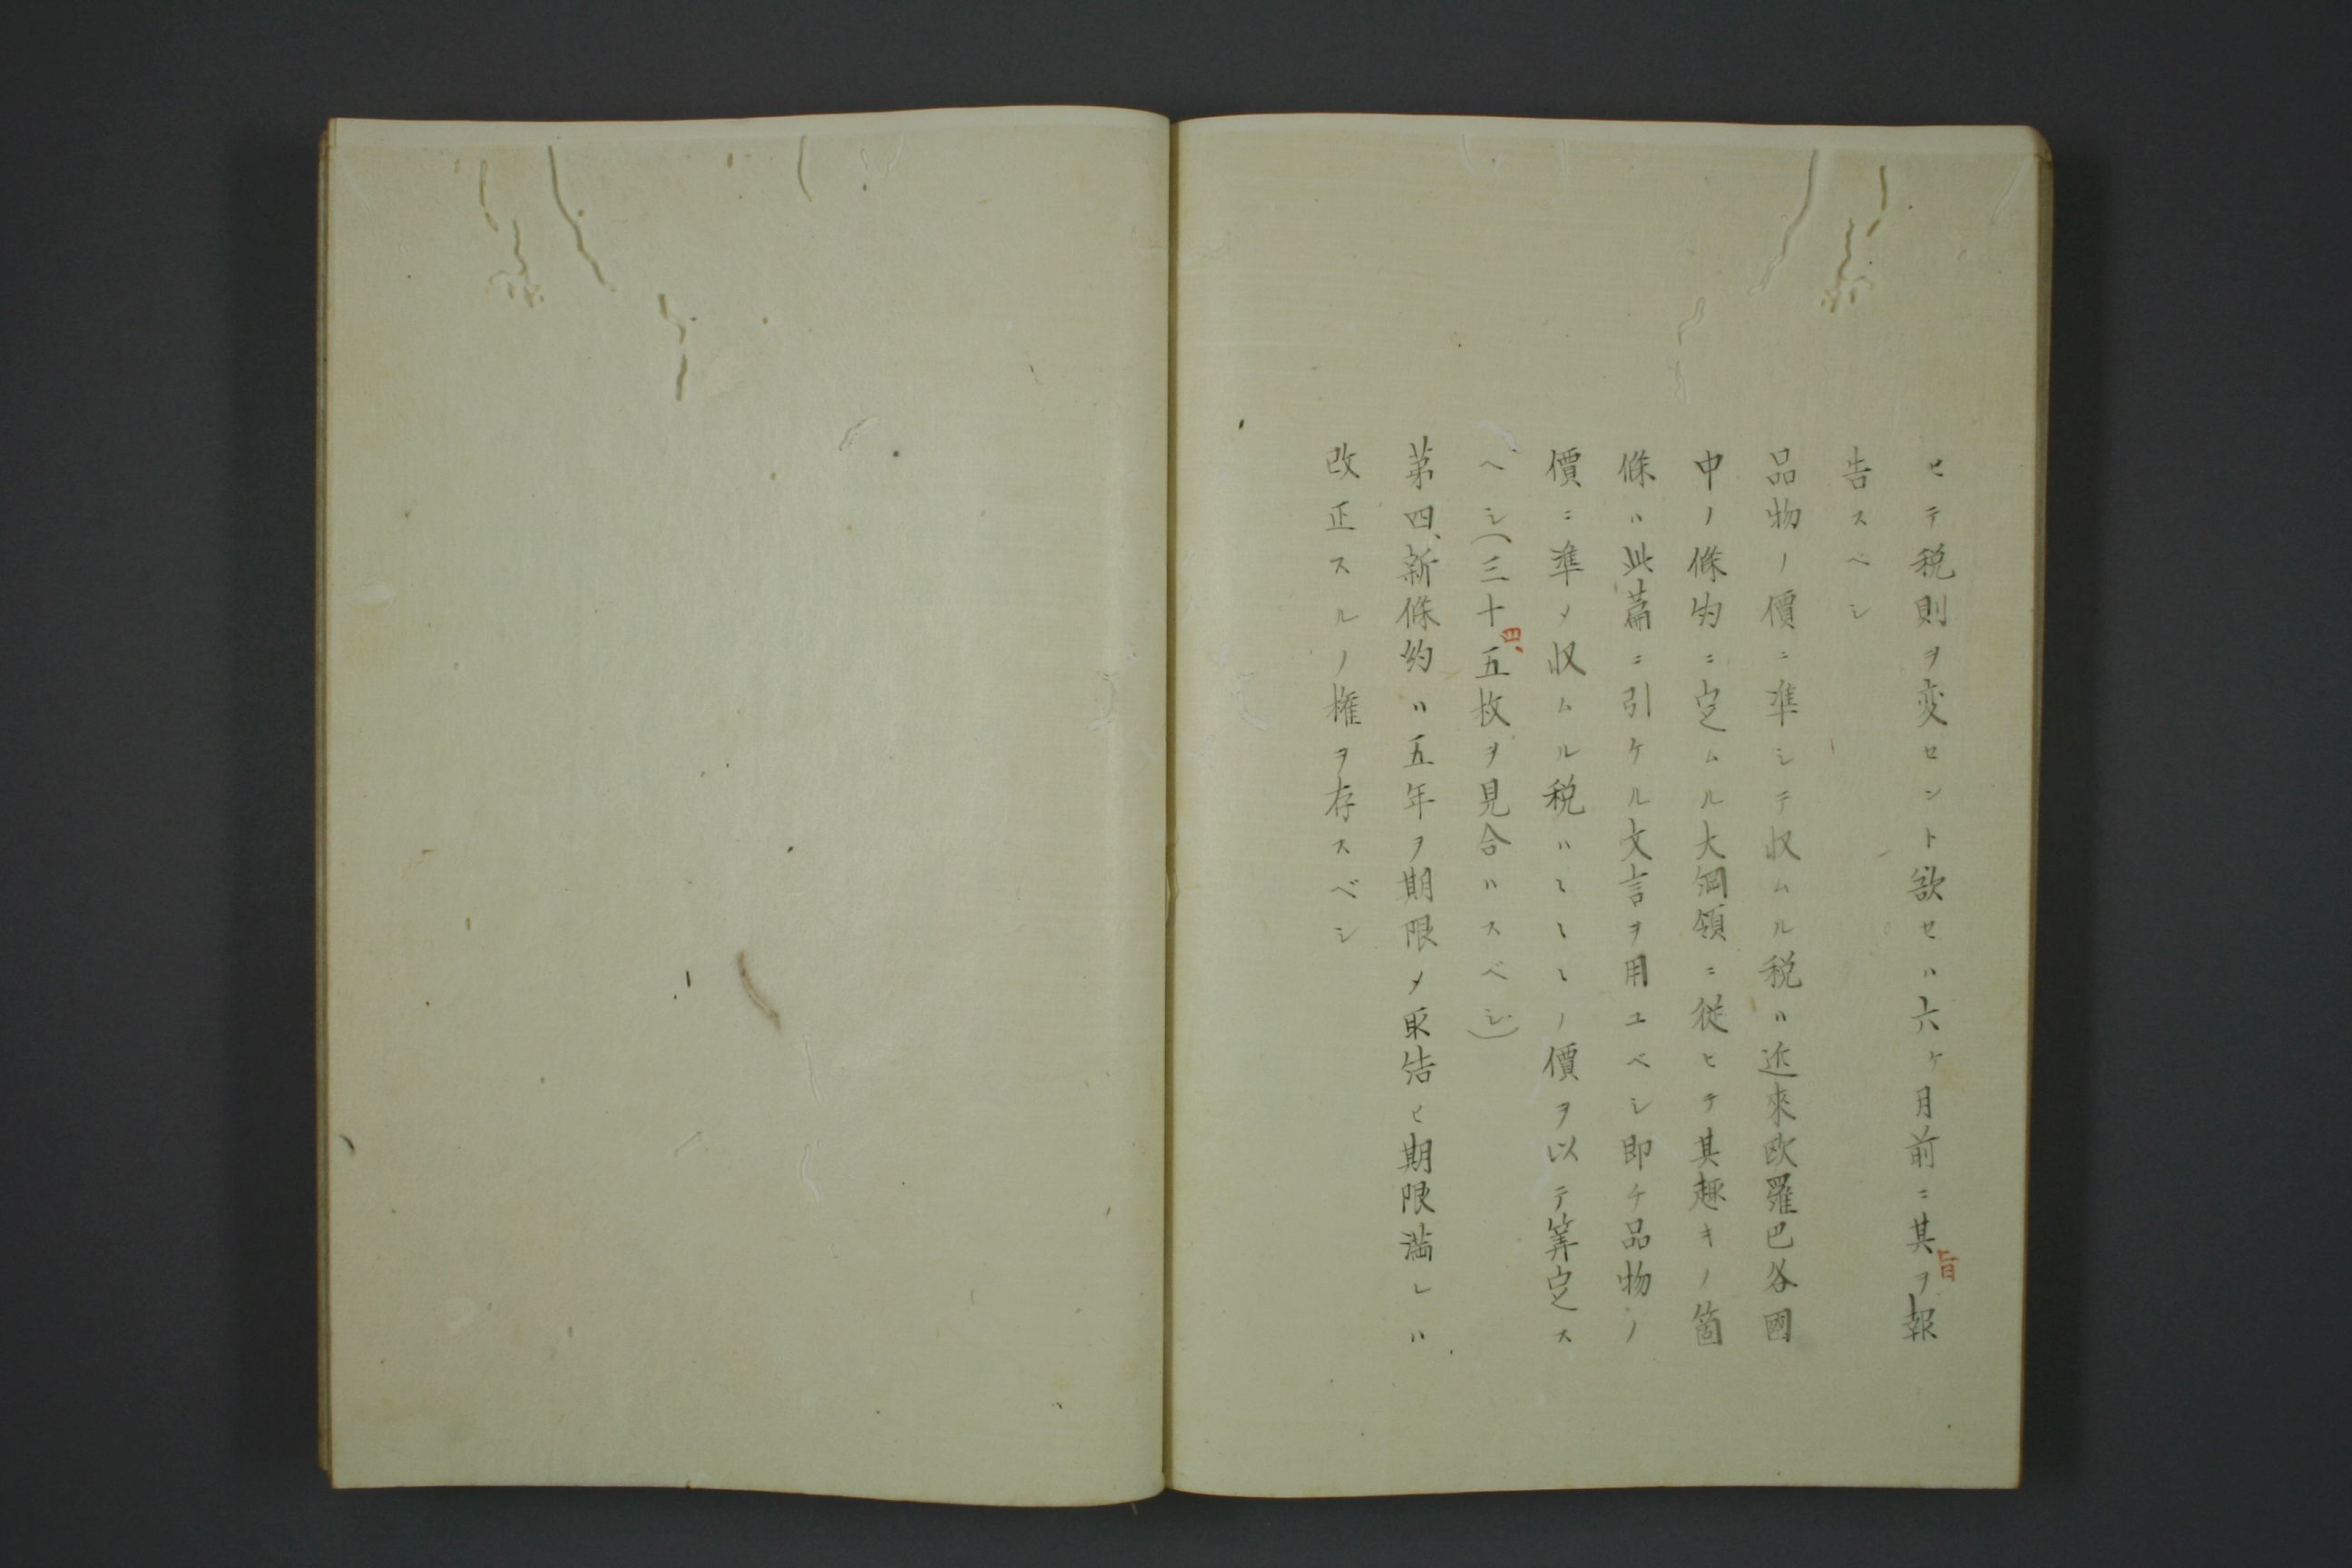 ヒテ税則ヲ変セント欲セハ六ケ月前ニ其旨ヲ報
告スベシ
品物ノ價ニ準シテ収ムル税ハ近來欧羅巴各國
中ノ條約ニ定ムル大綱領ニ從ヒテ其趣キノ箇
條ハ此篇ニ引ケル文言ヲ用ユベシ即チ品物ノ
價ニ準メ収ムル税ハ〻〻〻ノ價ヲ以テ筭定ス
ヘシ(三十四、五枚ヲ見合ハスベシ)
第四、新條約ハ五年ヲ期限メ告ヒ期限満レハ
改正スルノ権ヲ存スベシ